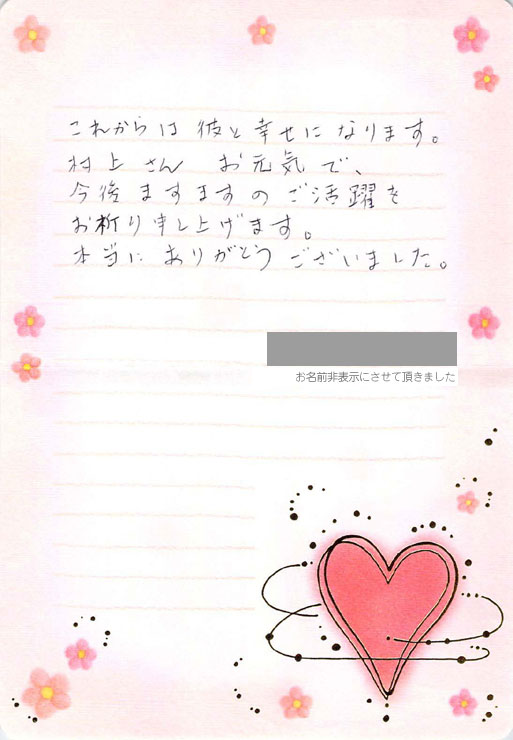 これからは彼と幸せになります。
村上さん お元気で、
今後ますますのご活躍を
お祈り申し上げます。
本当にありがとうございました。
お名前非表示にさせて頂きました